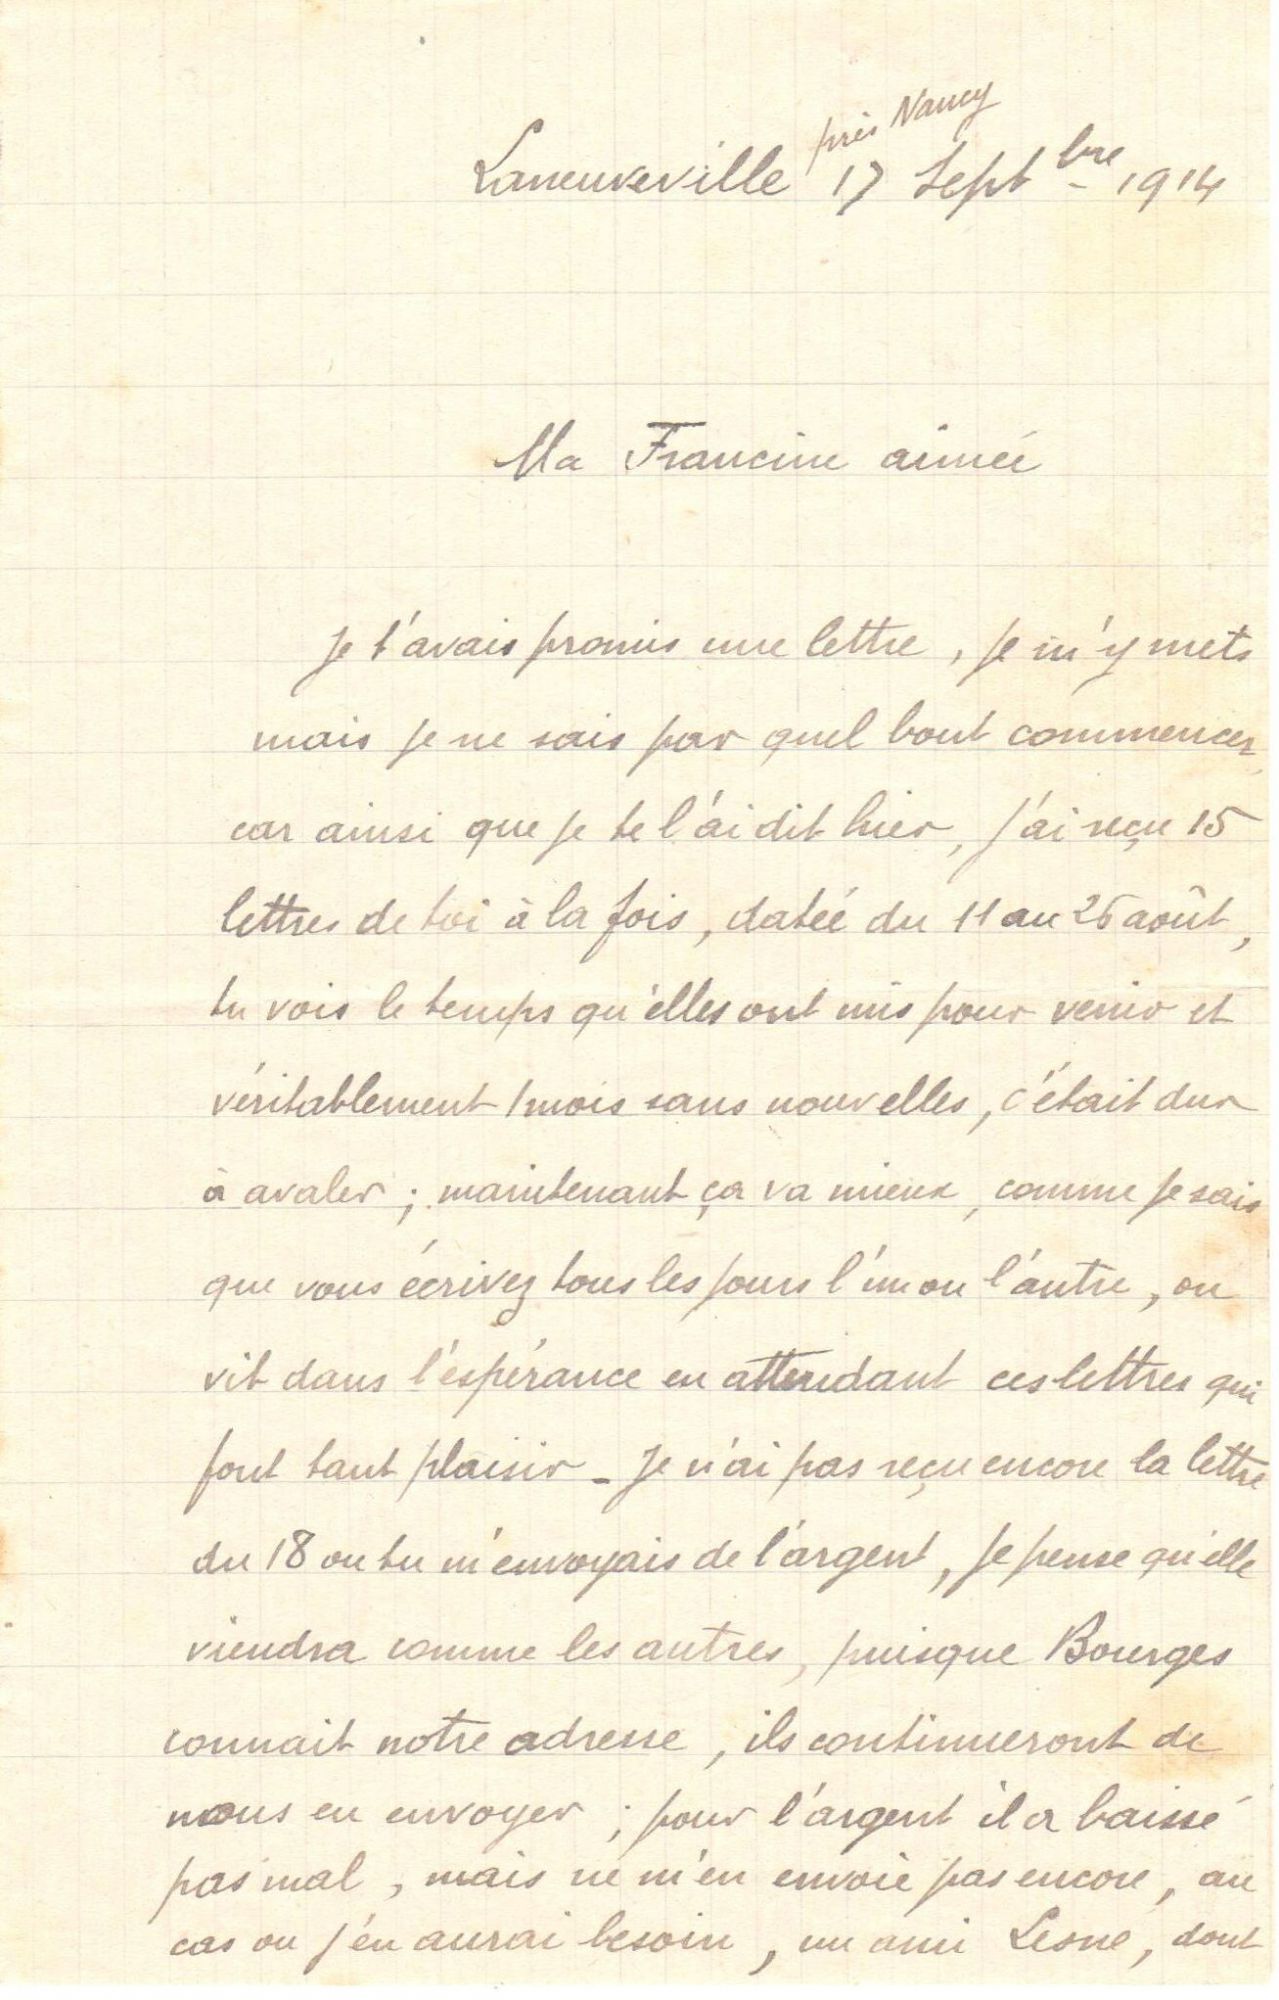 près Nancy
Laneuveville 17 Septbre - 1914
Ma Francine aimée
Je t'avais promis une lettre, je m'y mets
mais je ne sais par quel bout commencer
car ainsi que je te l'ai dit hier, j'ai reçu 15
lettres de toi à la fois, datée du 11 au 26 août,
tu vois le temps qu'elles ont mis pour venir et
véritablement 1 mois sans nouvelles, c'était dur
à avaler ; maintenant ça va mieux, comme je sais
que vous écrivez tous les jours l'un ou l'autre, on
vit dans l'espérance en attendant ces lettres qui
font tant plaisir - Je n'ai pas reçu encore la lettre
du 18 ou tu m'envoyais de l'argent, je pense qu'elle
viendra comme les autres, puisque Bourges
connait notre adresse, ils continueront de
nous en envoyer ; pour l'argent il a baissé
pas mal, mais ne m'en envoie pas encore, au
cas ou j'en aurai besoin, un ami Lesne, dont